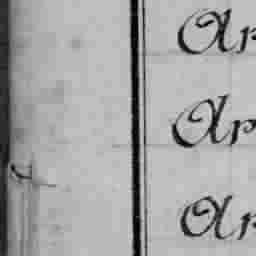 Ar
Ar
Ar